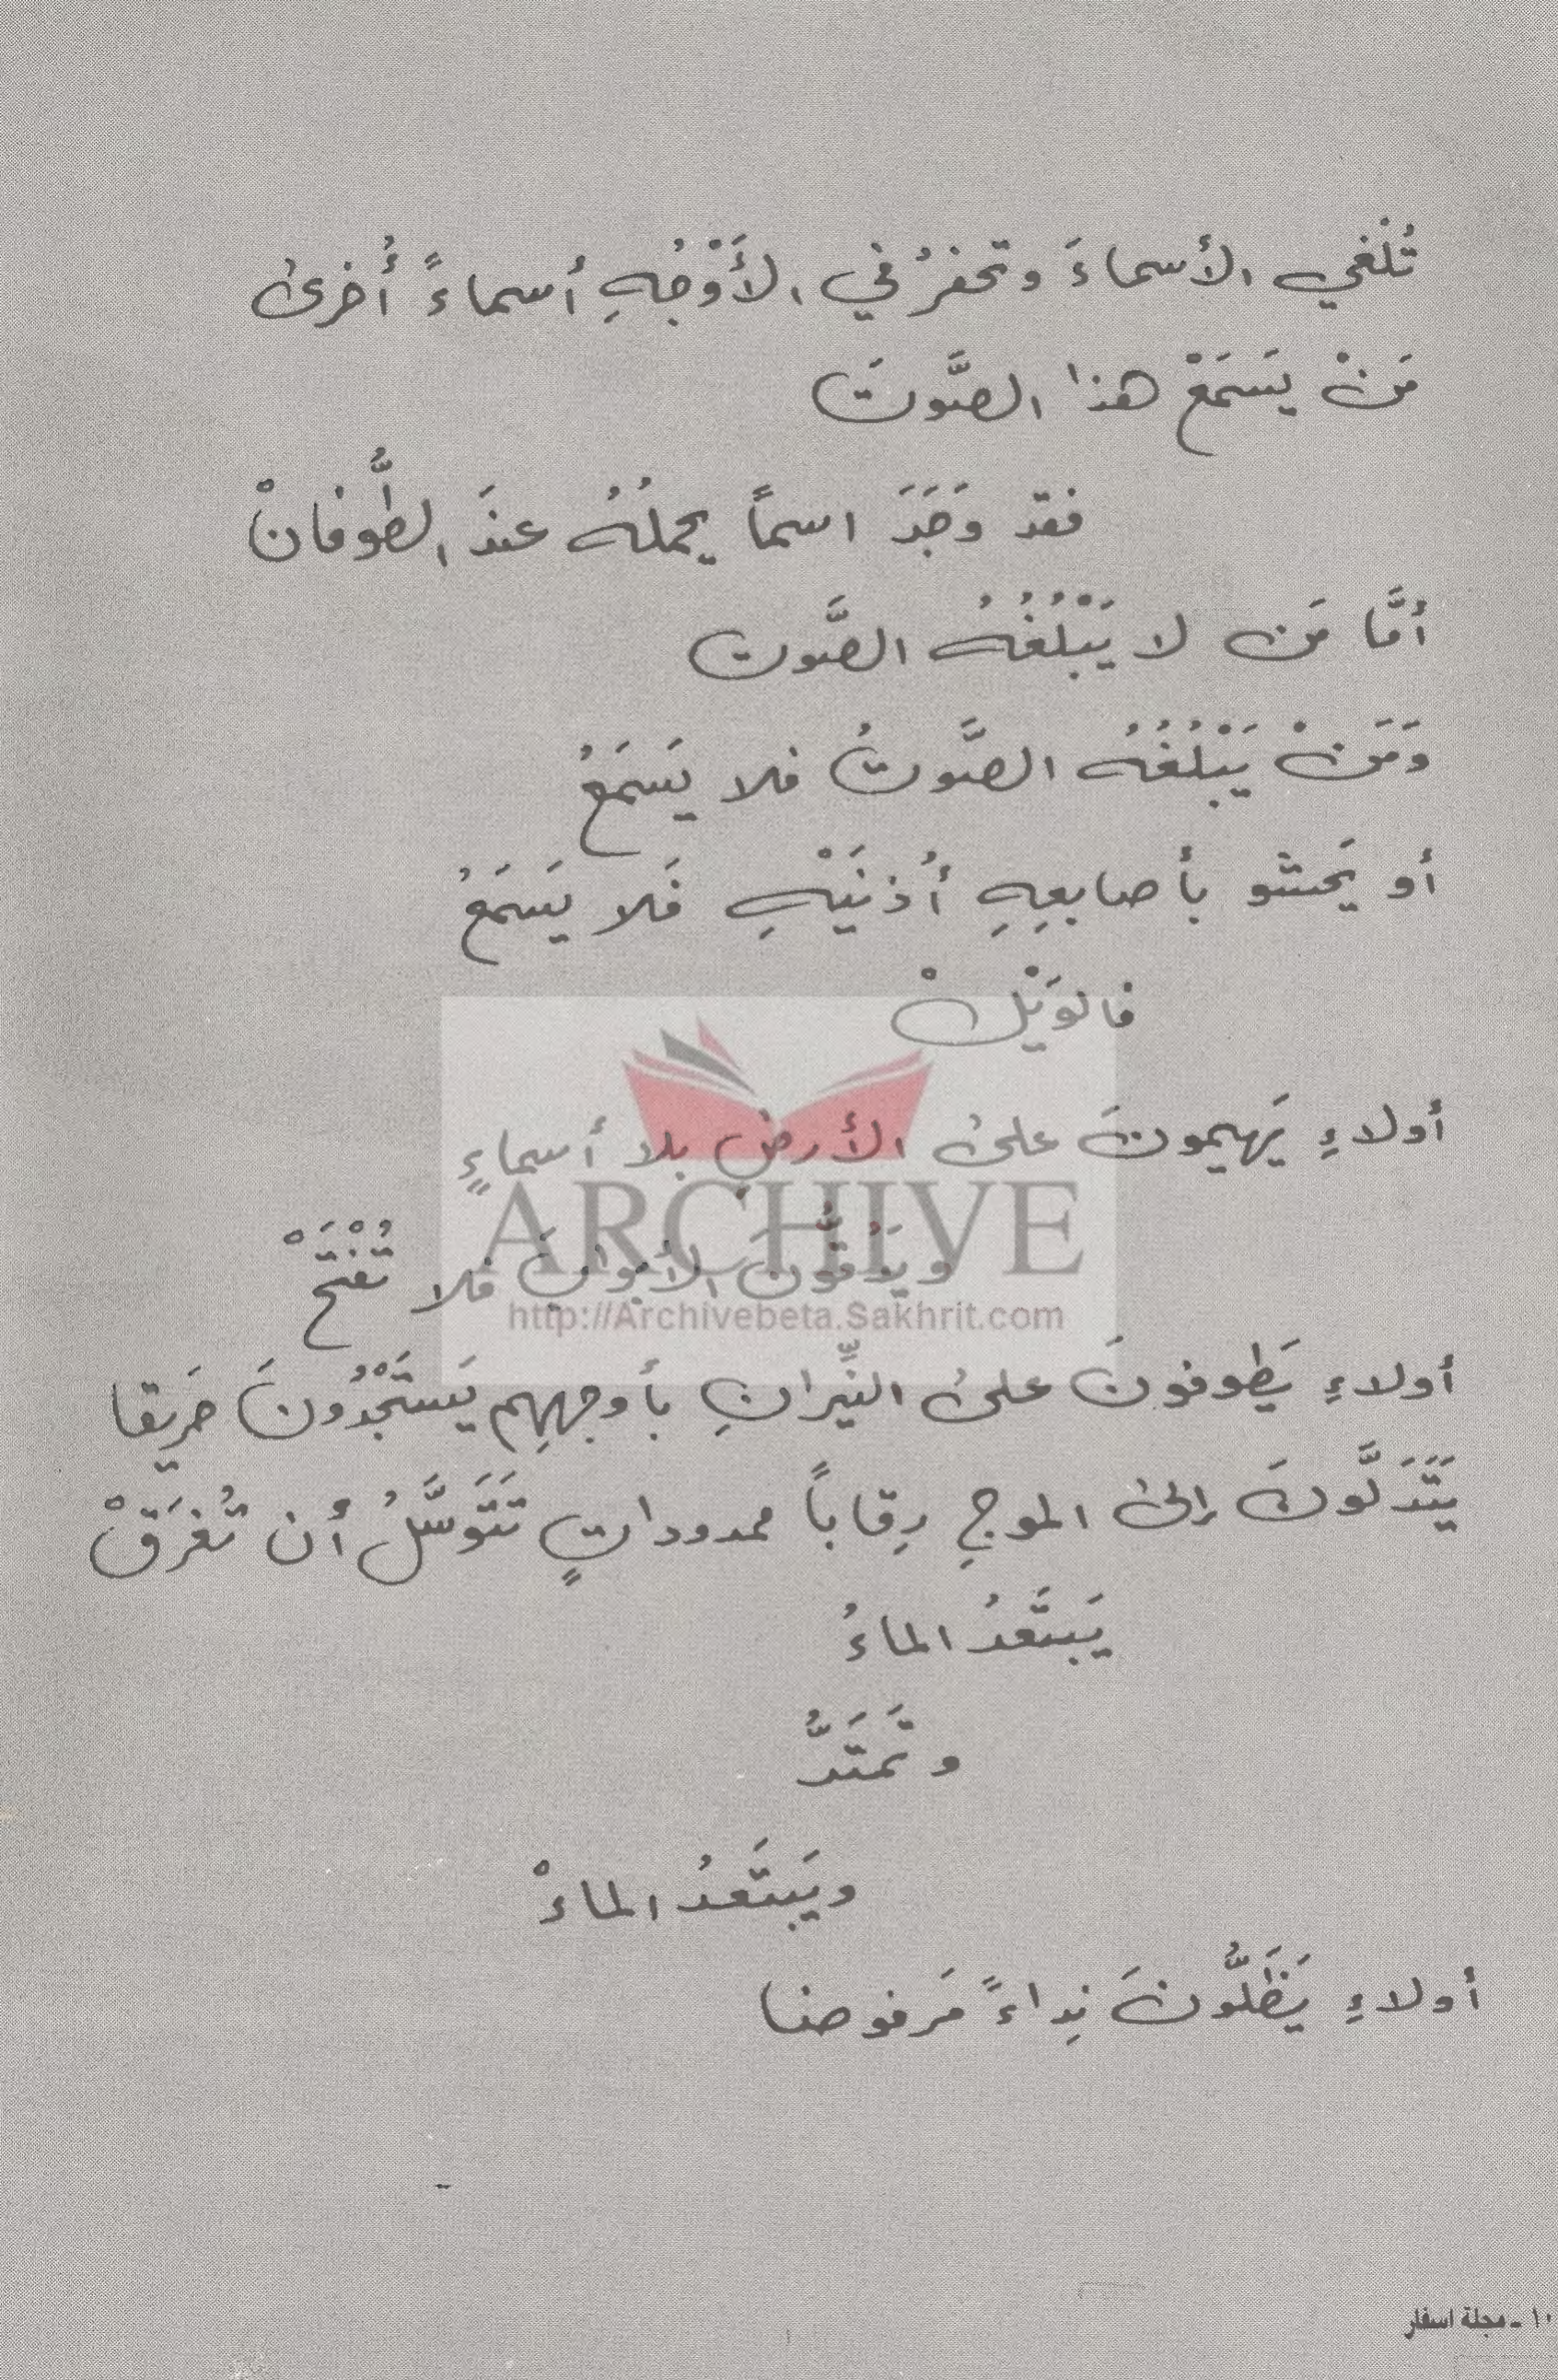 تُلْغي الأسماءَ وتحفرُ في الأَوْجُهِ أسماءً أُخرىٰ
مَنْ يَسمَعْ هذا الصَّوتَ
فقد وَجَدَ اسماً يحملُهُ عندَ الطُّوفانْ
أمَّا مَن لا يَبْلُغُهُ الصَّوت
وَمَنْ يَبْلُغُهُ الصَّوتُ فلا يَسمَعُ
أو يَحشو بأصابعِهِ أُذنَيْهِ فَلا يَسمَعُ
فالوَيْلْ
أولاءِ يَهيمونَ علىٰ الأرضِ بلا أسماءٍ
ويَدُقُّونَ الأبوابَ فلا تُفْتَحْ
أولاءِ يَطوفونَ علىٰ النِّيرانِ بأوجهِهِم يَستَجْدُونَ حَريقا
يَتَدَلَّونَ إلىٰ الموجِ رِقاباً ممدوداتٍ تَتَوسَّلُ أن تُغرَقْ
يَبتَعدُ الماءُ
وتَمتَدُّ
ويَبتَعدُ الماءْ
أولاءِ يَظَلُّونَ نِداءً مَرفوضا
ARCHIVE
http://Archivebeta.Sakhrit.com
١٠ ـ مجلة اسفار